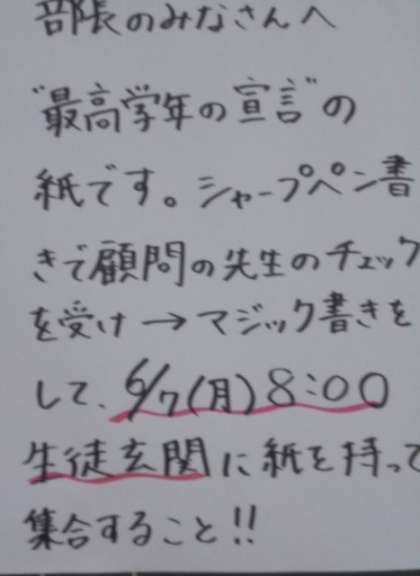 部長のみなさんへ
"最高学年の宣言"の
紙です。シャープペン書
きで顧問の先生のチェック
を受け→マジック書きを
して、6/7(月)8:00
生徒玄関に紙を持って
集合すること!!